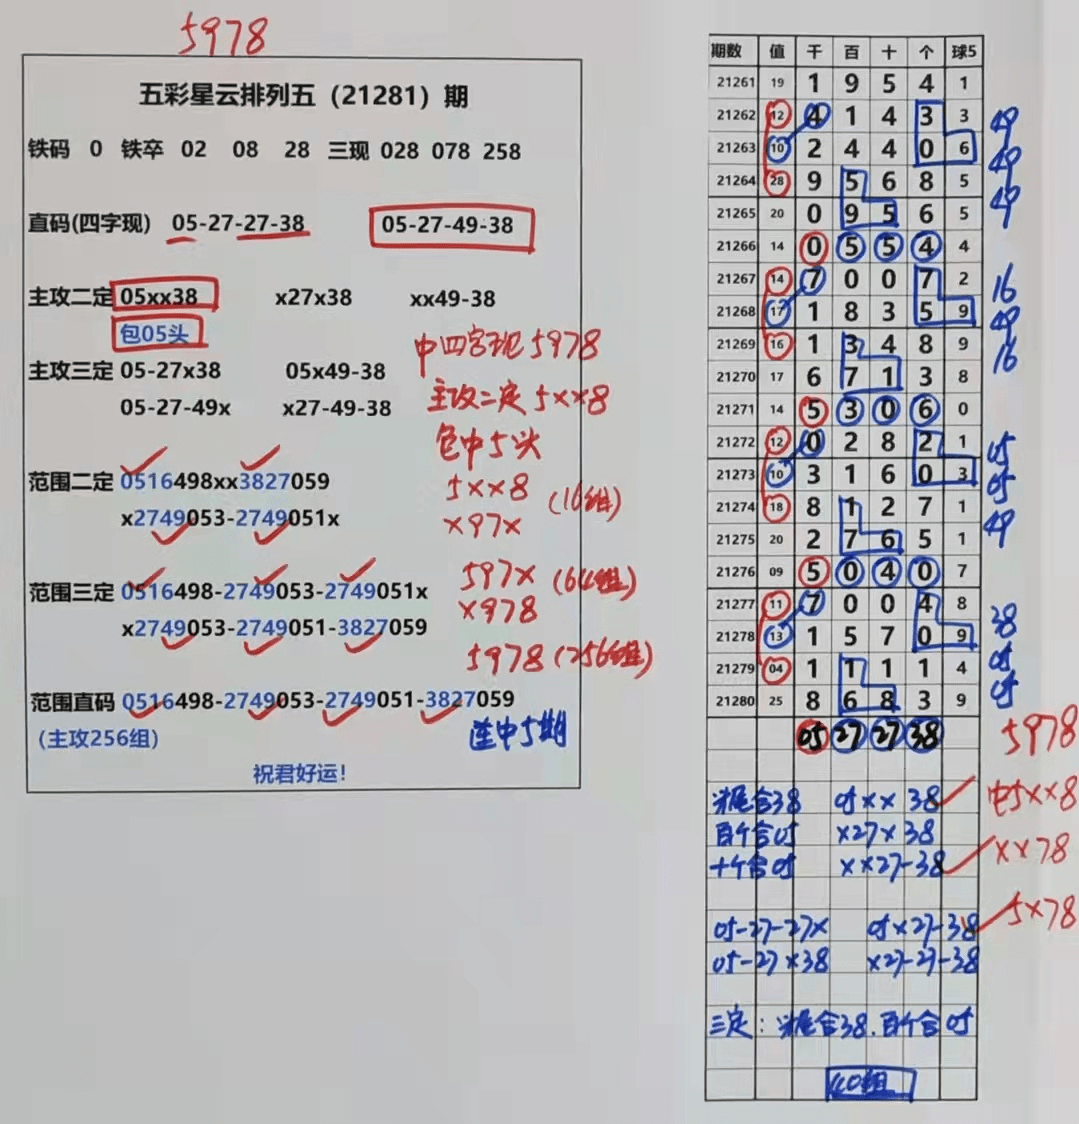 5978
五彩星云排列五（21281）期
铁码 0 铁卒 02 08 28 三现 028 078 258
直码(四字现) 05-27-27-38 05-27-49-38
主攻二定 05xx38 x27x38 xx49-38
包05头
主攻三定 05-27x38 05x49-38
05-27-49x x27-49-38
中四字现5978
主攻二定5xx8
包中5头
范围二定 0516498xx3827059
x2749053-2749051x
5xx8 (16组)
x97x
范围三定 0516498-2749053-2749051x
x2749053-2749051-3827059
597x (64组)
x978
5978 (256组)
范围直码 0516498-2749053-2749051-3827059
(主攻256组)
连中5期
祝君好运！
期数 值 千 百 十 个 球5
21261 19 1 9 5 4 1
21262 12 4 1 4 3 3 49
21263 10 2 4 4 0 6 49
21264 28 9 5 6 8 5 49
21265 20 0 9 5 6 5
21266 14 0 5 5 4 4
21267 14 7 0 0 7 2 16
21268 17 1 8 3 5 9 49
21269 16 1 3 4 8 9 16
21270 17 6 7 1 3 8
21271 14 5 3 0 6 0
21272 12 0 2 8 2 1 05
21273 10 3 1 6 0 3 05
21274 18 8 1 2 7 1 49
21275 20 2 7 6 5 1
21276 09 5 0 4 0 7
21277 11 7 0 0 4 8 38
21278 13 1 5 7 0 9 05
21279 04 1 1 1 1 4 05
21280 25 8 6 8 3 9
05 27 27 38 5978
尾合38 05xx 38 中5xx8
百个合05 x27x 38
十个合05 xx27-38 xx78
05-27-27x 05x27-38 5x78
05-27x38 x27-27-38
三定：尾合38.百个合05
40组